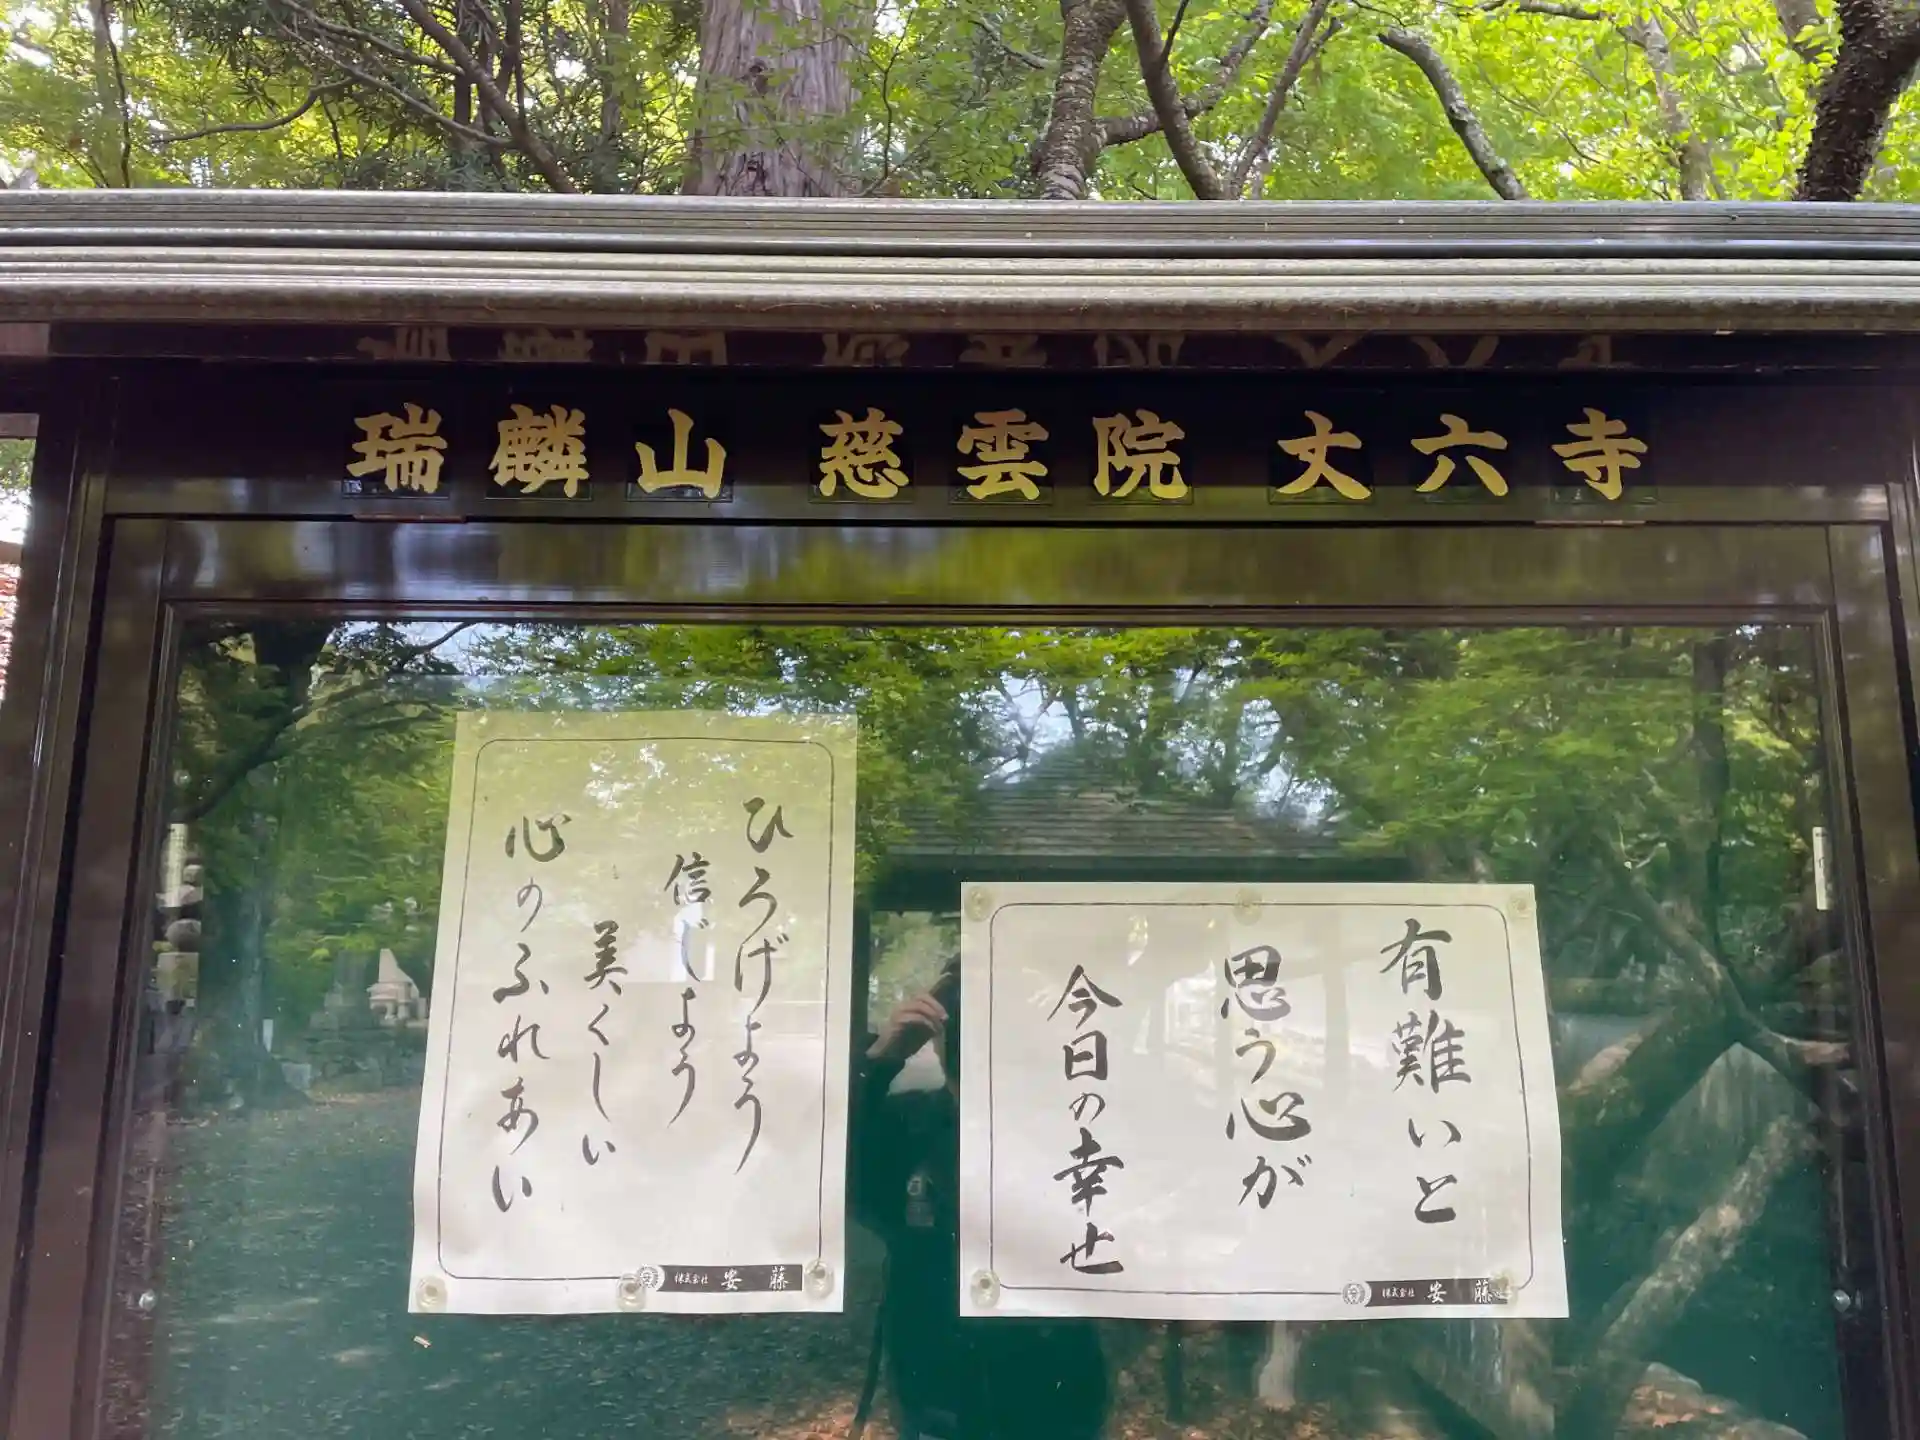 瑞麟山 慈雲院 丈六寺
有難いと
思う心が
今日の幸せ
株式会社 安藤
ひろげよう
信じよう
美くしい
心のふれあい
株式会社 安藤